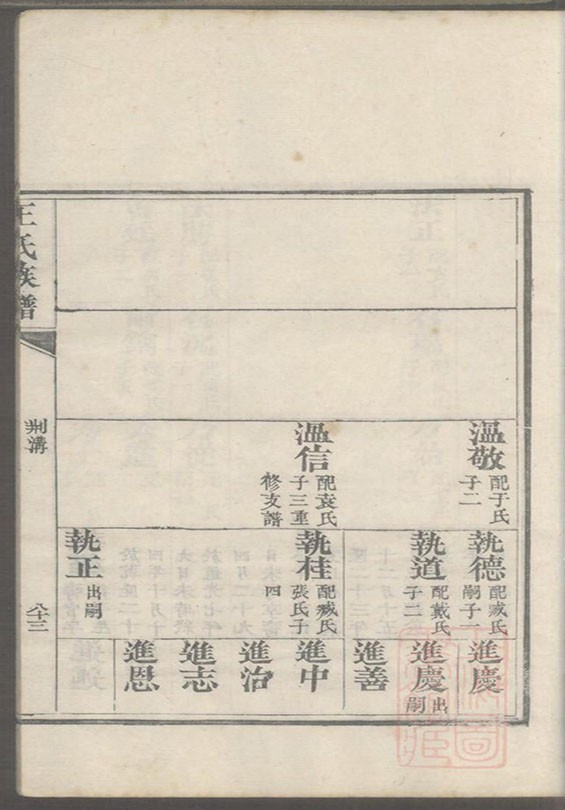 溫敬
配于氏
子二
溫信
配袁氏
子三重
修支譜
執德
配臧氏
嗣子一
執道
配戴氏
子二
執桂
配臧氏
張氏子
四
執正
出嗣
進慶
進慶
出嗣
進善
進中
進治
進志
進恩
王氏族譜
荆溝
八十三